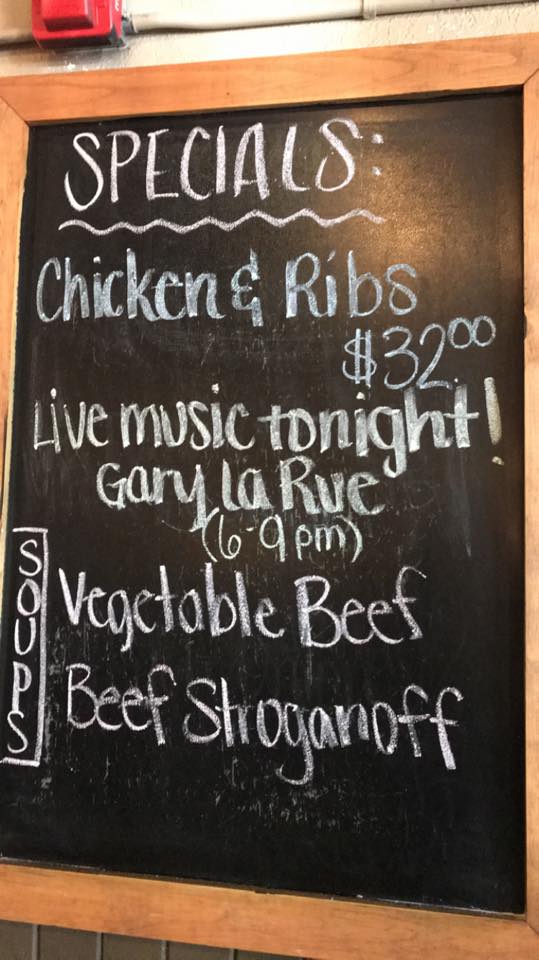 SPECIALS:
Chicken & Ribs
$32.00
Live music tonight!
Gary La Rue
(6-9pm)
SOUPS
Vegetable Beef
Beef Stroganoff